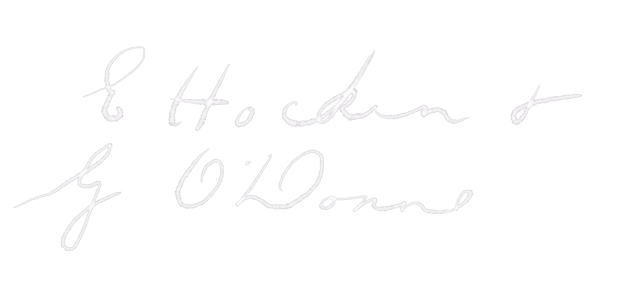 E Hocken &
G O'Donne